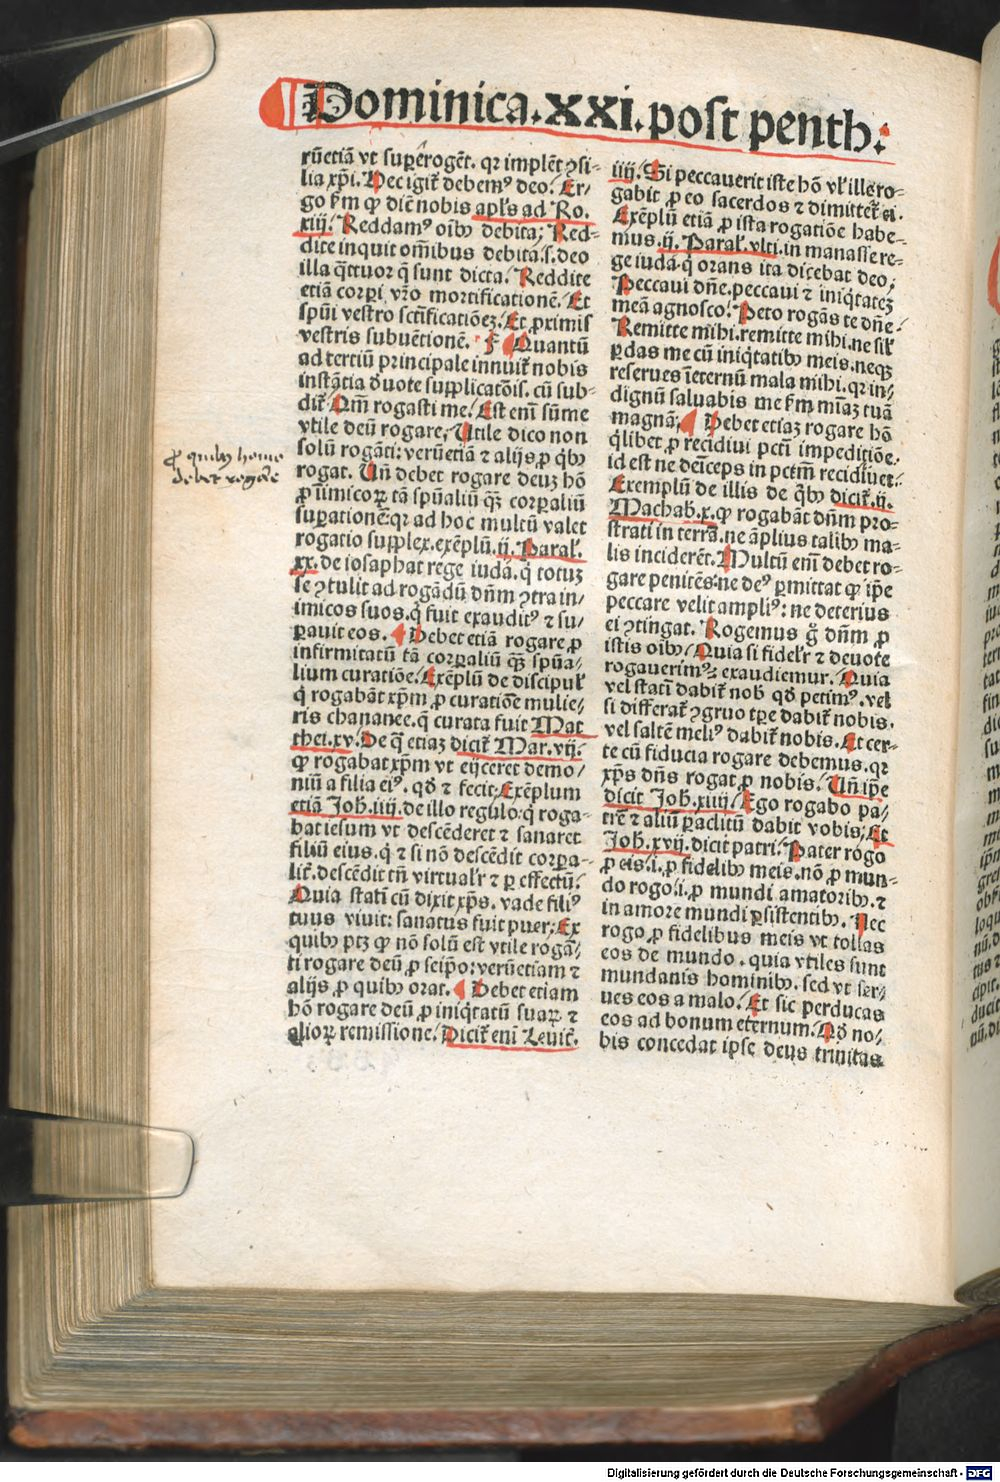 Dominica.xxi.post penth.
rūetiā vt suꝑerogēt. qꝛ implēt ꝯsi-
lia xp̄i. Hec igit̄ debemꝰ deo. Er/
go ẜm ꝙ diē nobis apl's ad Ro.
xiij. Reddamꝰ oīb⁹ debita; Red-
dite inquit om̄ibus debita.s.deo
illa q̄ttuor q̄ sunt dicta. Reddite
etiā corꝑi vr̄o mortificationē. Et
spūi vestro sctīficatiōeꝫ. Et ꝓximis
vestris subuētionē. Quantū
ad tertiū principale innuit̄ nobis
instātia deuote supplicatōis. cū sub-
dit̄ Qm̄ rogasti me. Est eni sūme
vtile deū rogare, Utile dico non
solū rogāti: verūetiā ⁊ alijs ꝓ qb⁹
rogat. Uñ debet rogare deuꝫ hō
ꝓ inimicoꝝ tā spūaliū qꝫ̄ corꝑaliū
suꝑationē:qꝛ ad hoc multū valet
rogatio supplex. exēplū.ij. Paral'.
xx. de iosaphat rege iuda. q̇ totuꝫ
se ꝯtulit ad rogādū dn̄m ꝯtra in/
imicos suos. q̇ fuit exauditꝰ ⁊ su/
ꝑauit eos. Debet etiā rogare ꝓ
infirmitatū tā corꝑaliū qꝫ̄ spūa/
lium curatiōe. Exēplū de discipul'
q̇ rogabāt xp̄m ꝓ curatiōe mulie/
ris chananee. q̄ curata fuit Mat
thei.xv. De q̄ etiaꝫ dicit̄ Mar.vij.
ꝙ rogabat xp̄m vt eijceret demo/
niū a filia eiꝰ. qd̄ ⁊ fecit. Exēplum
etiā Joh̄.iiij. de illo regulo: q̇ roga-
bat iesum vt descēderet ⁊ sanaret
filiū eius. q̇ ⁊ si nō descēdit corꝑa-
lit̄. descēdit tn̄ virtual'r ⁊ ꝑ effectū.
Quia statī cū dixit xp̄s. vade filiꝰ
tuus viuit: sanatus fuit puer. Ex
quib⁹ ptꝫ ꝙ nō solū est vtile rogā/
ti rogare deū ꝓ seip̄o: verūetiam ⁊
alijs ꝓ quib⁹ orat. Debet etiam
hō rogare deū ꝓ iniq̇tatū suaꝝ ⁊
alioꝝ remissione. Dicit̄ eni Leuit̄.
iiij. Si peccauerit iste hō vl' ille ro-
gabit ꝓ eo sacerdos ⁊ dimittet̄ ei.
Exēplū etiā ꝓ ista rogatiōe habe-
mus.ij. Paral'. vlti. in manasse re-
ge iuda. q̇ orans ita dicebat deo;
Peccaui dn̄e. peccaui ⁊ iniq̇tateꝫ
meā agnosco. Peto rogās te dn̄e.
Remitte mihi. remitte mihi. ne sil'
ꝑdas me cū iniq̇tatib⁹ meis. neqꝫ
reserues īeternū mala mihi. qꝛ in/
dignū saluabis me ẜm mīaꝫ tuā
magnā; Debet etiaꝫ rogare hō
q̇libet ꝓ recidiui pctī impeditiōe.
id est ne deīceps in pctm̄ recidiuet.
Exemplū de illis de qb⁹ dicit̄.ij.
Machab̄.x. ꝙ rogabāt dn̄m pro-
strati in terra. ne āplius talib⁹ ma-
lis inciderēt. Multū eni debet ro-
gare penitēs: ne deꝰ ꝑmittat ꝙ ip̄e
peccare velit ampliꝰ: ne deterius
ei ꝯtingat. Rogemus g̊ dn̄m ꝓ
istis oīb⁹ Quia si fidel'r ⁊ deuote
rogauerimꝰ: exaudiemur. Quia
vel statī dabit̄ nob̄ qd̄ petimꝰ. vel
si differat̄ ꝯgruo tꝑe dabit̄ nobis.
vel saltē meliꝰ dabit̄ nobis. Et cer-
te cū fiducia rogare debemus. qꝛ
xp̄s dn̄s rogat ꝓ nobis. Uñ ip̄e
dicit Joh̄.xiiij. Ego rogabo pa/
trē ⁊ aliū ꝑaclitū dabit vobis; Et
Joh̄.xvij. dicit patri. Pater rogo
ꝓ eis.i. ꝓ fidelib⁹ meis. nō ꝓ mun-
do rogo.i. ꝓ mundi amatorib⁹. ⁊
in amore mundi ꝑsistentib⁹. Nec
rogo ꝓ fidelibus meis vt tollas
eos de mundo. quia vtiles sunt
mundanis hominib⁹. sed vt ser/
ues eos a malo. Et sic perducas
eos ad bonum eternum. Qd̄ no/
bis concedat ipse deus trinitas
ꝓ quib⁹ homo
debet rogare
Digitalisierung gefördert durch die Deutsche Forschungsgemeinschaft - DFG